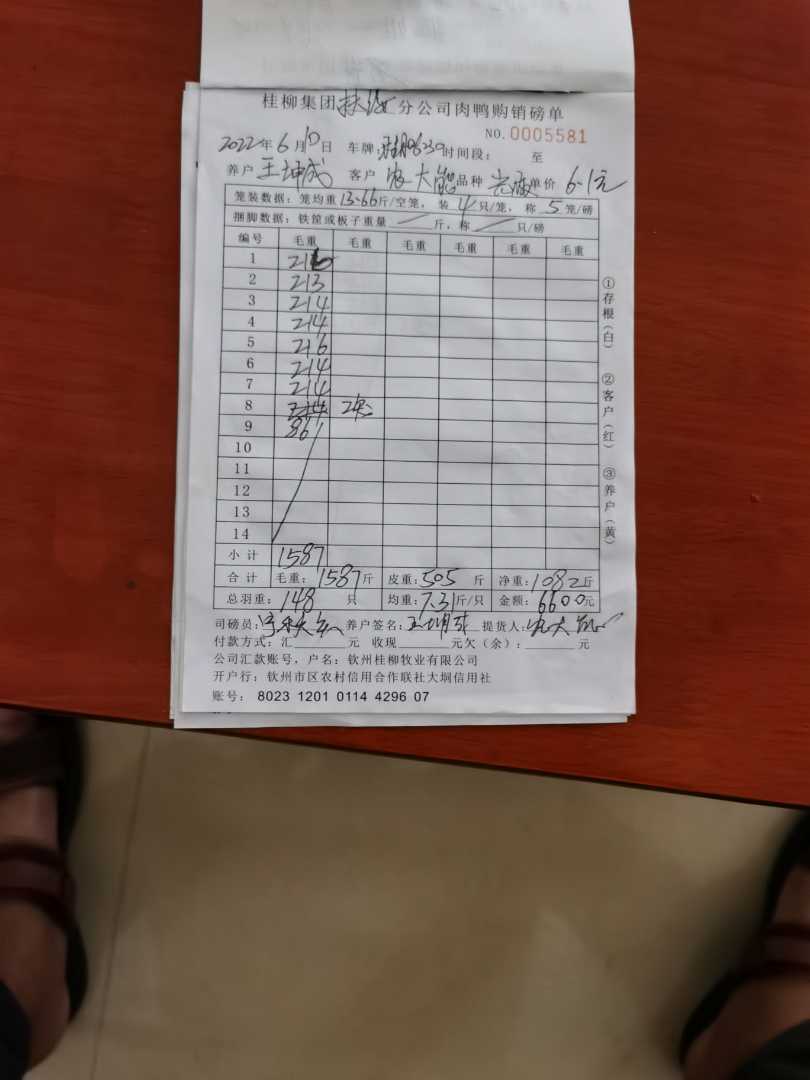 桂柳集团扶绥分公司肉鸭购销磅单
NO.0005581
2022年6月10日 车牌: 时间段: 至
养户 王坤成 客户 农大 品种 单价 6.1元
笼装数据: 笼均重13.66斤/空笼, 装4只/笼, 称5笼/磅
捆脚数据: 铁筐或板子重量 — 斤, 称 — 只/磅
编号 毛重 毛重 毛重 毛重 毛重 毛重
1 216
2 213
3 214
4 214
5 216
6 214
7 214
8
9 86
10
11
12
13
14
小计 1587
合计 毛重: 1587斤 皮重: 505 斤 净重: 1082斤
总羽重: 148 只 均重: 7.31斤/只 金额: 6600元
司磅员: 养户签名: 提货人: 农大
付款方式: 汇 元 收现 元欠(余): 元
公司汇款账号, 户名: 钦州桂柳牧业有限公司
开户行: 钦州市区农村信用合作联社大垌信用社
账号: 8023 1201 0114 4296 07
①存根(白)
②客户(红)
③养户(黄)